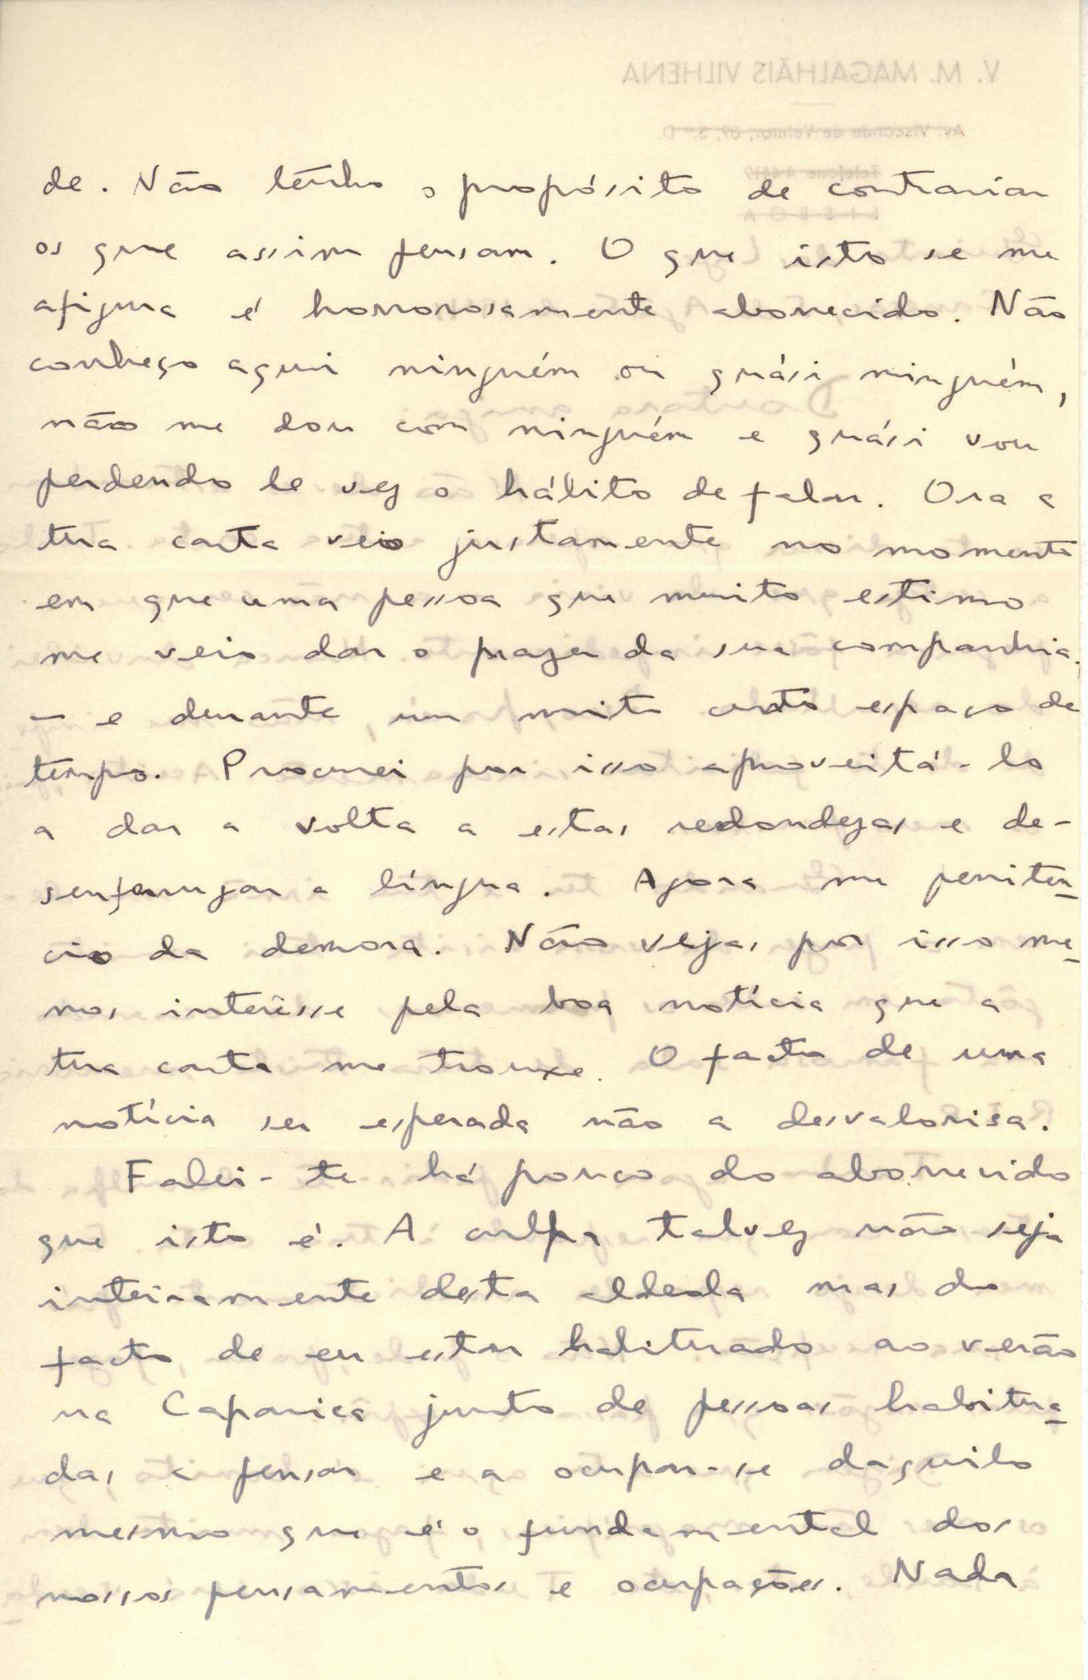 V. M. MAGALHÃIS VILHENA
Av. Visconde de Valmor,
Telefone
LISBOA
de. Não tenho o propósito de contrariar
os que assim pensam. O que isto se me
afigura é horrorosamente aborrecido. Não
conheço aqui ninguém ou quási ninguém,
não me dou com ninguém e quási vou
perdendo de vez o hábito de falar. Ora a
tua carta veio justamente no momento
em que uma pessoa que muito estimo
me veio dar o prazer da sua companhia,
— e durante um muito curto espaço de
tempo. Procurei por isso aproveitá-lo
a dar a volta a estas redondezas e de-
senferrujar a língua. Agora me peniten-
cio da demora. Não vejas por isso me-
nos interêsse pela boa notícia que a
tua carta me trouxe. O facto de uma
notícia ser esperada não a desvalorisa.
Falei-te há pouco do aborrecido
que isto é. A culpa talvez não seja
inteiramente desta aldeola mas do
facto de eu estar habituado ao verão
na Caparica junto de pessoas habitua-
das a pensar e a ocupar-se daquilo
mesmo que é o fundamental dos
nossos pensamentos e ocupações. Nada